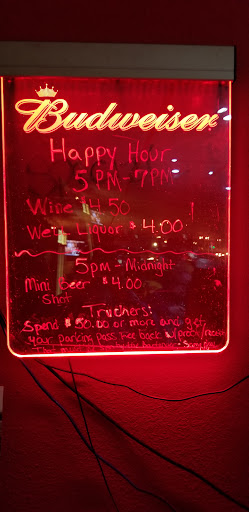 Budweiser
Happy Hour
5PM-7PM
Wine $4.50
Well Liquor $4.00
5pm - Midnight
Mini Beer $4.00
Shot
Truckers:
Spend $50.00 or more and get
your parking pass fee back w/proof/receipt